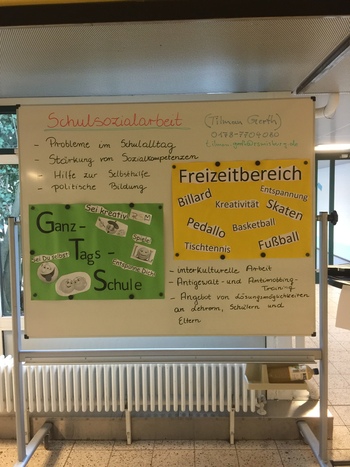 Schulsozialarbeit
(Tilman Gerth)
0178-7709080
- Probleme im Schulalltag
- Stärkung von Sozialkompetenzen
- Hilfe zur Selbsthilfe
- politische Bildung
Freizeitbereich
Billard
Entspannung
Kreativität
Skaten
Pedallo
Basketball
Tischtennis
Fußball
Sei kreativ
Ganz-
Tags-
Schule
Spiele
Entspanne Dich
- interkulturelle Arbeit
- Antigewalt- und Antimobbing-
Training
- Angebot von Lösungsmöglichkeiten
an Lehrern, Schülern und
Eltern